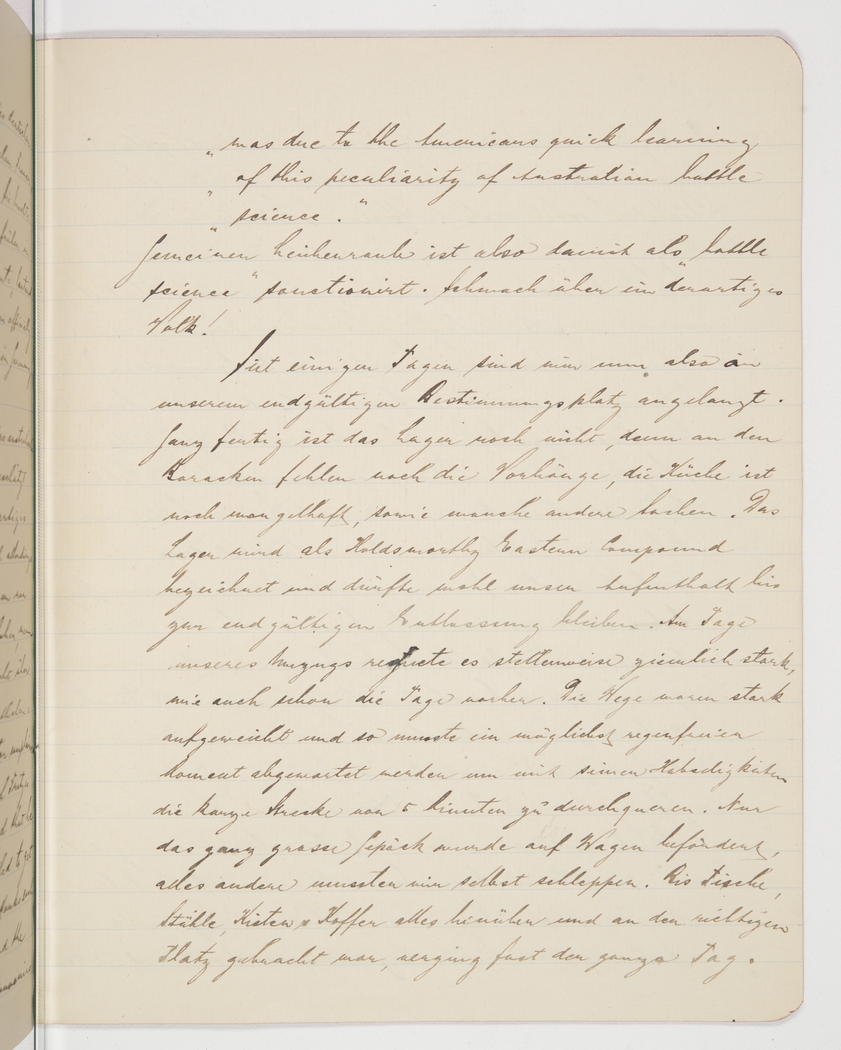 „ was due to the Americans quick learning
„ of this peculiarity of Australian battle
„ science."
Gemeiner Leichenraub ist also damit als „battle
science" sanctionirt. Schmach über ein derartiges
Volk!
Seit einigen Tagen sind wir nun also an
unserem endgültigen Bestimmungsplatz angelangt.
Ganz fertig ist das Lager noch nicht, denn an den
Baracken fehlen noch die Vorhänge, die Küche ist
noch mangelhaft, sowie manche andere Sachen. Das
Lager wird als Holdsworthy Eastern Compound
bezeichnet und dürfte wohl unser Aufenthalt bis
zur endgültigen Entlassung bleiben. Am Tage
unseres Umzugs regnete es stellenweise ziemlich stark,
wie auch schon die Tage vorher. Die Wege waren stark
aufgeweicht und so musste ein möglichst regenfreier
Moment abgewartet werden um mit seinen Habseligkeiten
die kurze Strecke von 5 Minuten zu durchqueren. Nur
das ganz grosse Gepäck wurde auf Wagen befördert,
alles andere mussten wir selbst schleppen. Bis Tische,
Stühle, Kisten & Koffer alles hinüber und an den richtigen
Platz gebracht war, verging fast der ganze Tag.